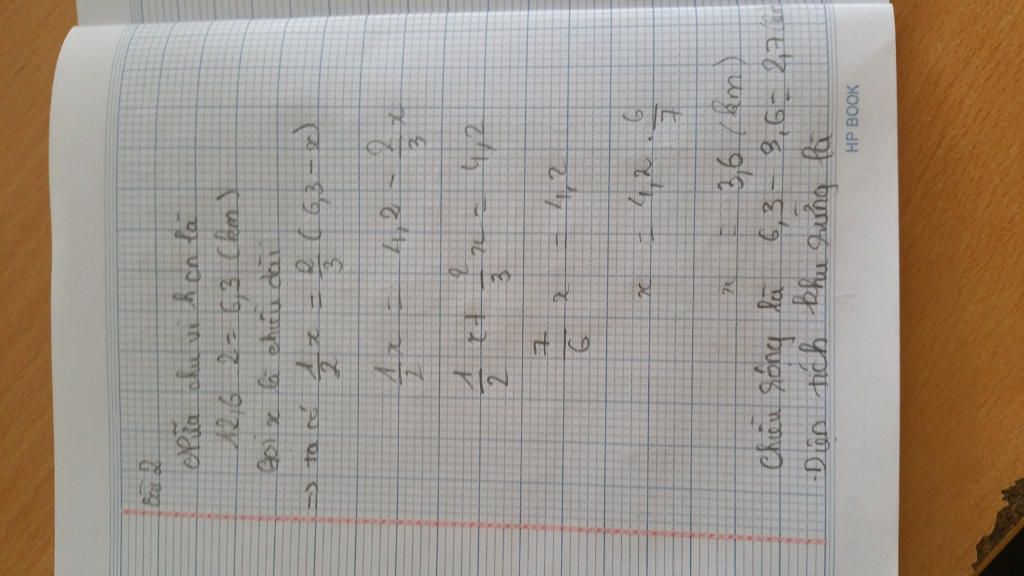 Bài 2
Nửa chu vi hcn là
12,6 : 2 = 6,3 (km)
Gọi x là chiều dài
=> ta có 1/2 x = 2/3 (6,3 - x)
1/2 x = 4,2 - 2/3 x
1/2 x + 2/3 x = 4,2
7/6 x = 4,2
x = 4,2 . 6/7
x = 3,6 (km)
Chiều rộng là 6,3 - 3,6 = 2,7 (km
Diện tích khu rừng là
HP BOOK